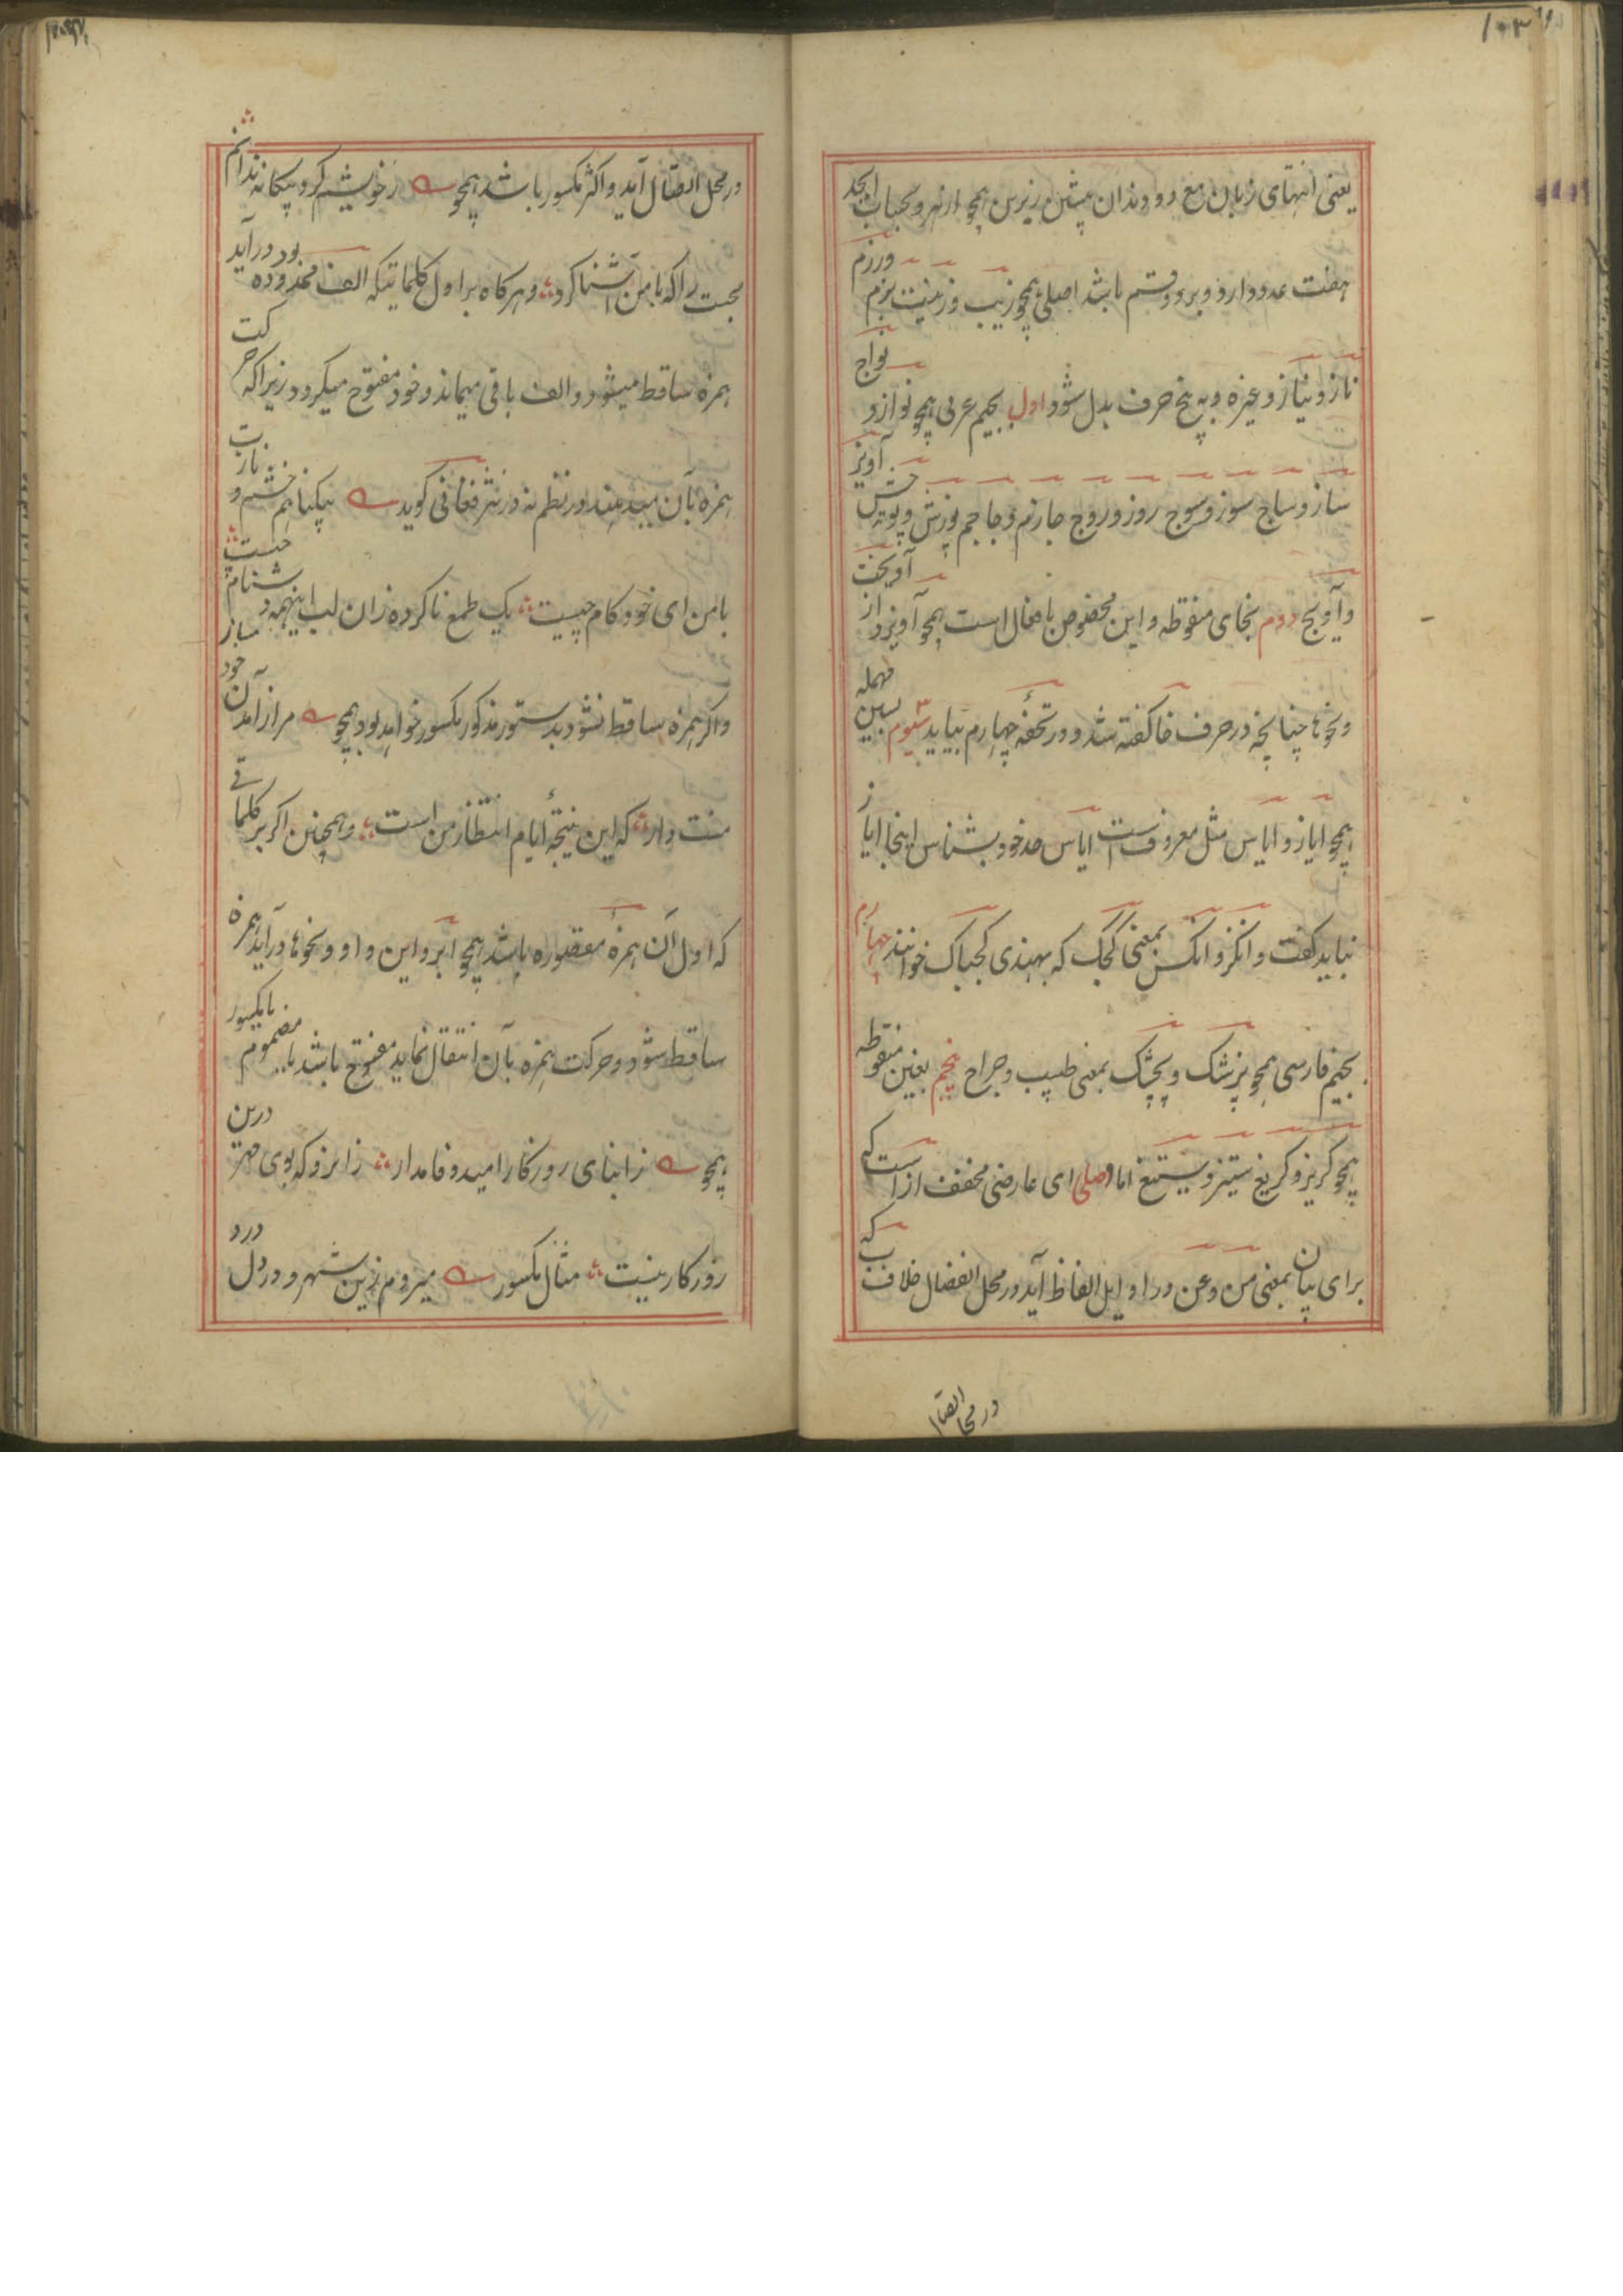 ۱۰۳
یعنی انتهای زبان مع دو دندان پیشین زیرین همچو از نهر و بحساب ابجد
هفت عدد دارد و بر دو قسم باشد اصلی همچو زیب و زینت بزم ورزم
ناز و نیاز و غیره و به پنج حرف بدل شود اول بجیم عربی همچو نواز و نواج
ساز و ساج سوز و سوج روز و روج جازم و جاجم پوزش و پوجش آویز
و آویج دوم بخای منقوطه و این مخصوص بافعال است همچو آویزد از آویخت
و نحوها چنانچه در حرف خا گفته شد و در تحفهٔ چهارم بیاید سیوم بسین مهمله
همچو ایاز و ایاس مثل معروفست ایاس حد خود بشناس اینجا ایاز
نباید گفت و انگز و انگس بمعنی کجک که بهندی کجباک خوانند چهارم
بجیم فارسی همچو پزشک و پچشک بمعنی طبیب و جراح پنجم بغین منقوطه
همچو گریز و گریغ ستیز و ستیغ اما وصلی ای عارضی مخفف از است که
برای بیان بمعنی من و عن در اوایل الفاظ آید در محل انفصال خلاف که
در محل اتصا
در محل اتصال آید و اکثر مکسور باشد همچو ز خویشم کرد بیگانه ندانم
محبت را که با من آشنا کرد و هرگاه بر اول کلماتیکه الف ممدوده بود در آید
همزه ساقط میشود و الف باقی میماند و خود مفتوح میگردد زیرا که حرکت
همزه بآن میدهند در نظم نه در نثر فغانی گوید بیگناهم خشم و نازت
با من ای خودکام چیست یک طمع ناکرده زان لب اینهمه دشنام چیست
و اگر همزه ساقط نشود بدستور مذکور مکسور خواهد بود همچو مر از آمدن خود
منت دار که این نتیجهٔ ایام انتظار من است و همچنین اگر بر کلماتی
که اول آن همزهٔ مقصوره باشد همچو ابر و این و او و نحوها در آید همزه
ساقط شود و حرکت همزه بآن انتقال نماید مفتوح باشد یا مضموم یا مکسور
همچو ز ابنای روزگار امید وفا مدار زانرو که بوی مهر درین
روزگار نیست مثال مکسور میروم زین شهر و در دل درد